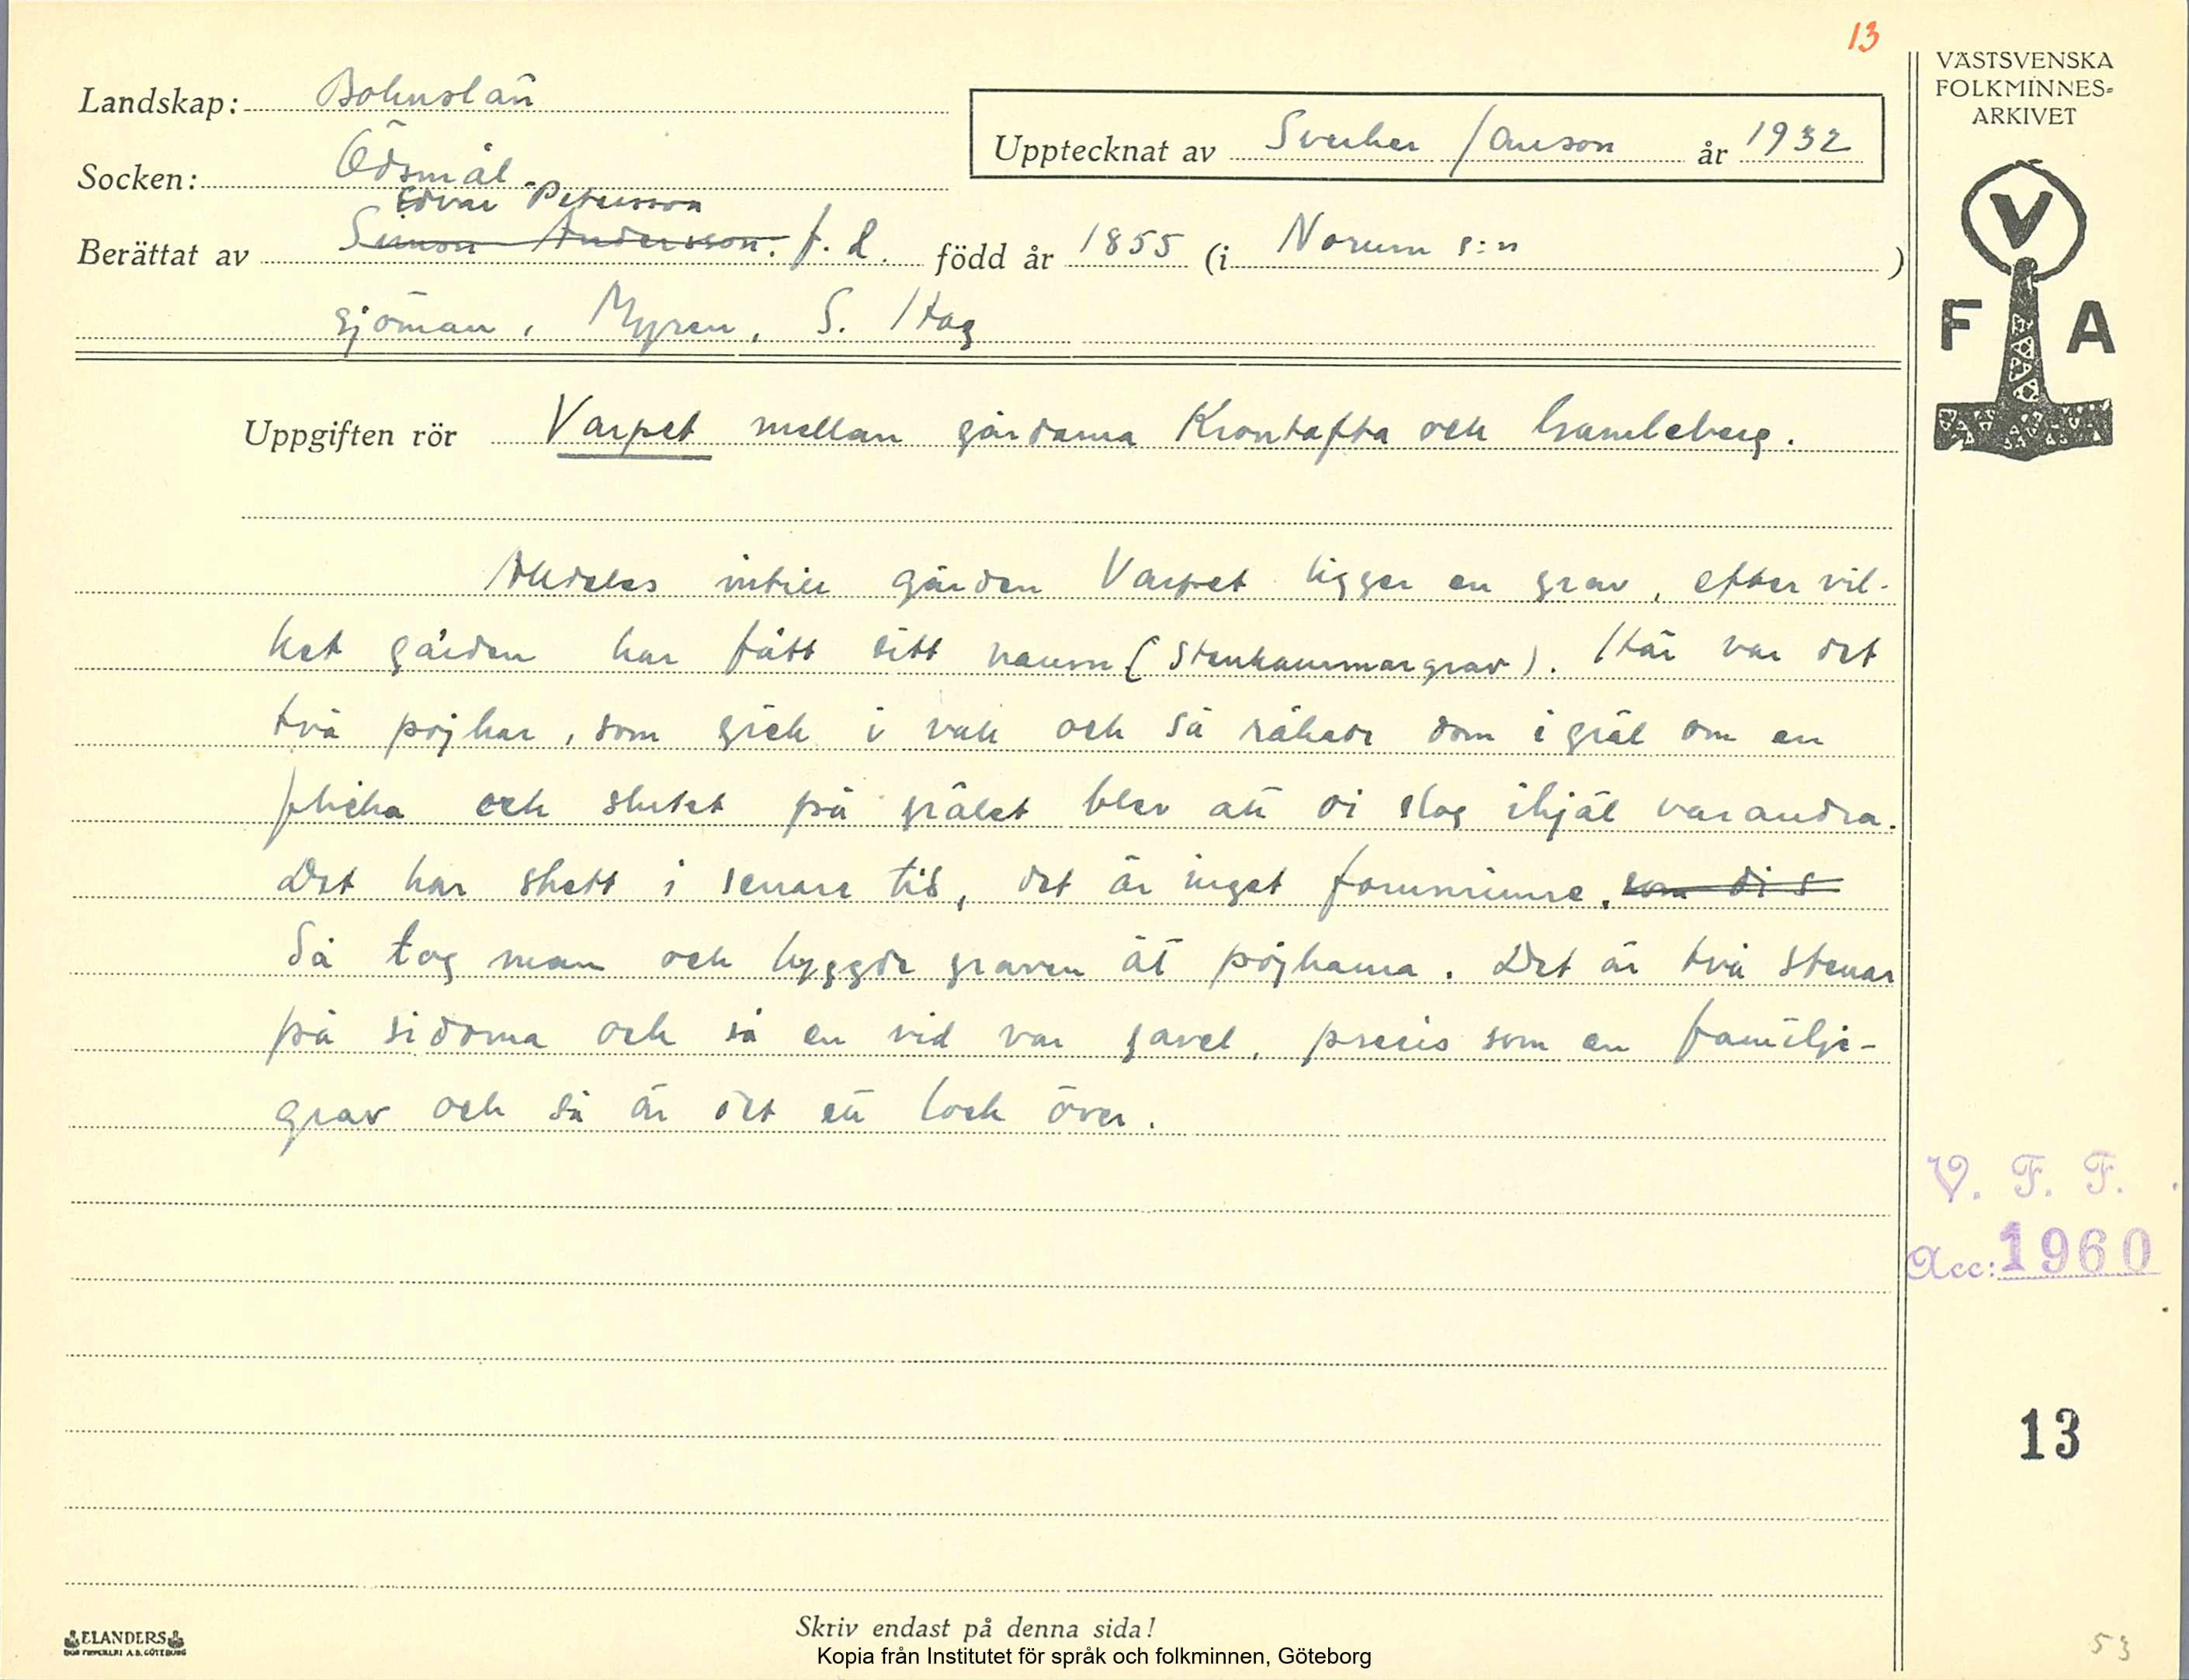 13
VÄSTSVENSKA
FOLKMINNES=
ARKIVET
Landskap: Bohuslän
Upptecknat av Sverker Janson år 1932
Socken: Ödsmål
Edvar Petersson
Berättat av Simon Andersson. f. d. född år 1855 (i Norum s:n )
sjöman, Myren, S. Hag
V
F A
Uppgiften rör Varpet mellan gårdarna Krontofta och Gamleberg.
Alldeles intill gården Varpet ligger en grav, efter vil-
ket gården har fått sitt namn (Stenkammargrav). Här var det
två pojkar, som gick i vall och så råkade dom i gräl om en
flicka och slutet på grälet blev att di slog ihjäl varandra.
Det har skett i senare tid, det är inget fornminne. som di s
Så tog man och byggde graven åt pojkarna. Det är två stenar
på sidorna och så en vid var gavel, precis som en familje-
grav och så är det ett lock över.
V. F. F.
Acc: 1960
13
Skriv endast på denna sida!
ELANDERS
BOKTRYCKERI A.B. GÖTEBORG
Kopia från Institutet för språk och folkminnen, Göteborg
53